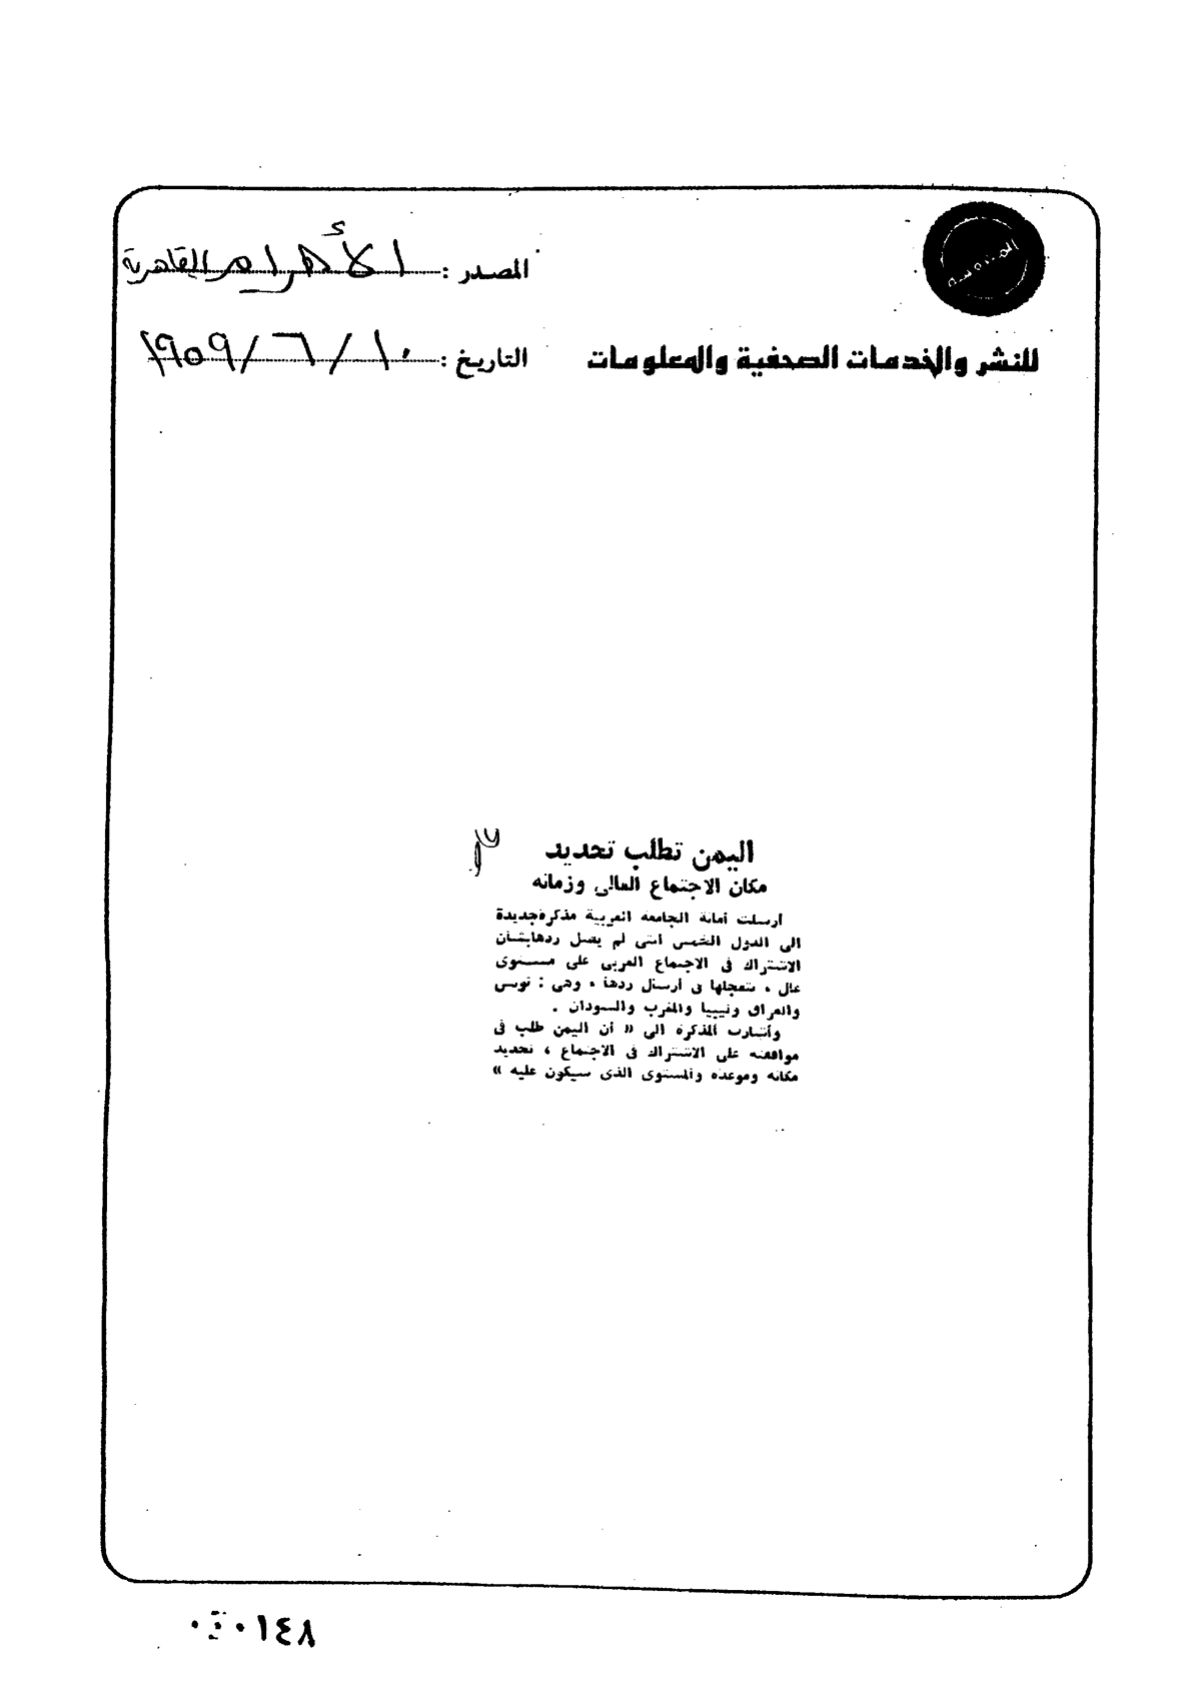 المصدر : الأهرام القاهرية
للنشر والخدمات الصحفية والمعلومات
التاريخ : ١٠ / ٦ / ١٩٥٩
اليمن تطلب تحديد
مكان الاجتماع العالى وزمانه
أرسلت أمانة الجامعة العربية مذكرة جديدة
الى الدول الخمس التى لم يصل ردها بشأن
الاشتراك فى الاجتماع العربى على مستوى
عال ، تتعجلها فى أرسال ردها ، وهى : تونس
والعراق وليبيا والمغرب والسودان .
وأشارت المذكرة الى « أن اليمن طلب فى
موافقته على الاشتراك فى الاجتماع ، تحديد
مكانه وموعده والمستوى الذى سيكون عليه »
١٤٨